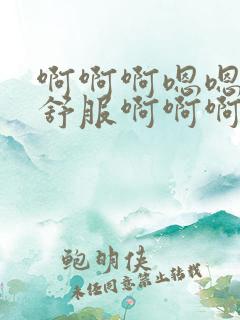 啊啊啊嗯嗯
舒服啊啊啊
鲍明侠
未经同意禁止转载